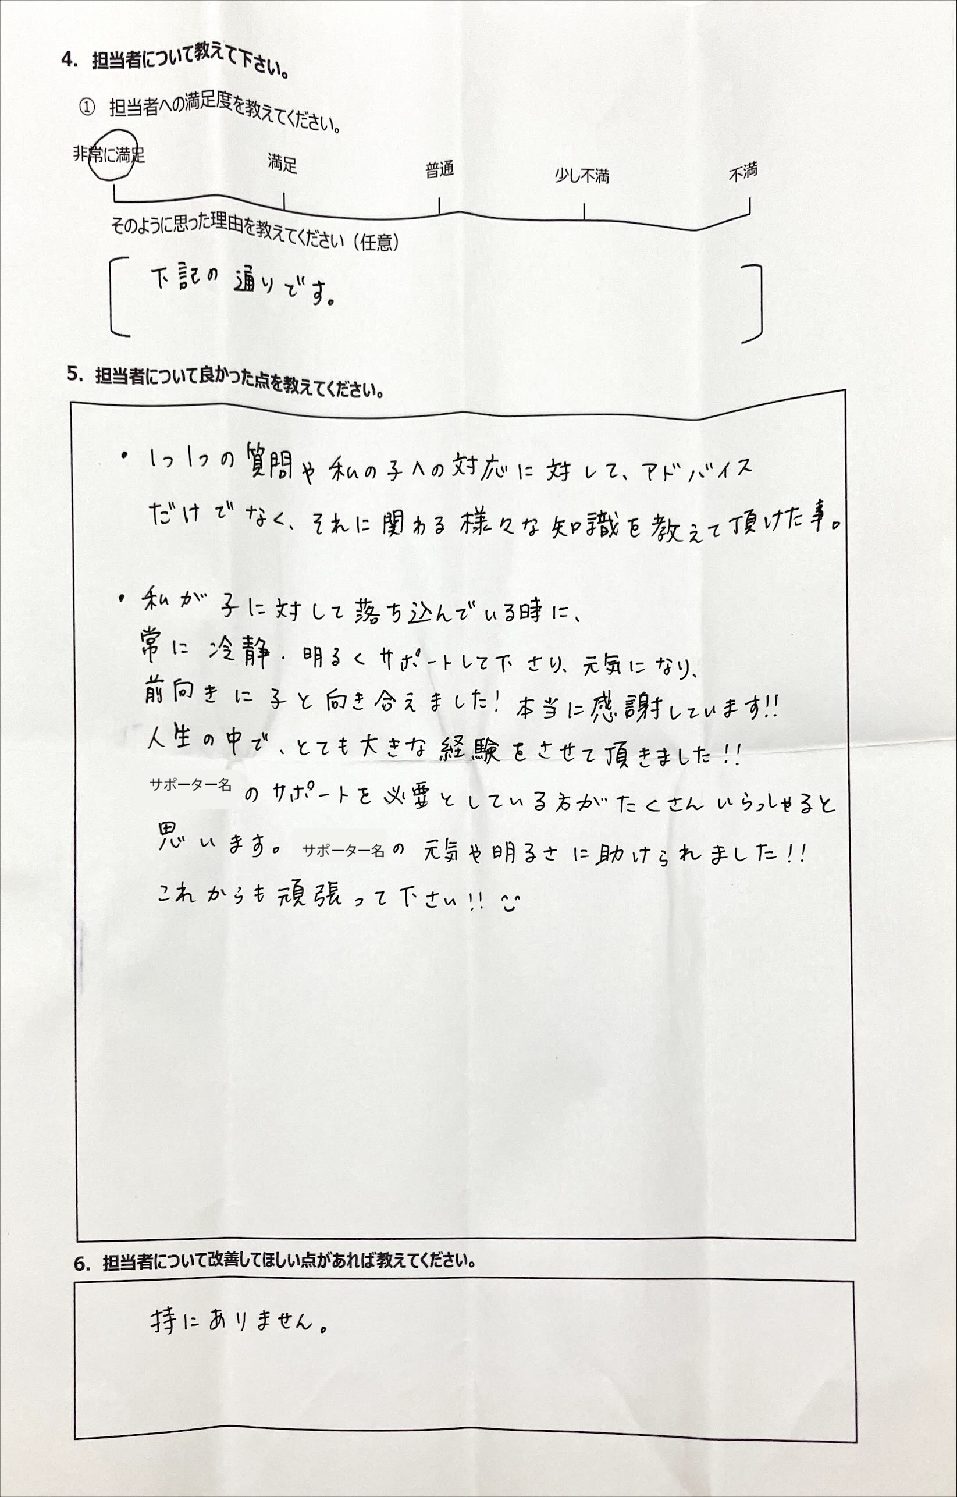 4. 担当者について教えて下さい。
① 担当者への満足度を教えてください。
非常に満足 満足 普通 少し不満 不満
そのように思った理由を教えてください（任意）
下記の通りです。
5. 担当者について良かった点を教えてください。
・1つ1つの質問や私の子への対応に対して、アドバイス
だけでなく、それに関わる様々な知識を教えて頂けた事。
・私が子に対して落ち込んでいる時に、
常に冷静、明るくサポートして下さり、元気になり、
前向きに子と向き合えました! 本当に感謝しています!!
人生の中で、とても大きな経験をさせて頂きました!!
サポーター名のサポートを必要としている方がたくさんいらっしゃると
思います。サポーター名の元気や明るさに助けられました!!
これからも頑張って下さい!!
6. 担当者について改善してほしい点があれば教えてください。
特にありません。